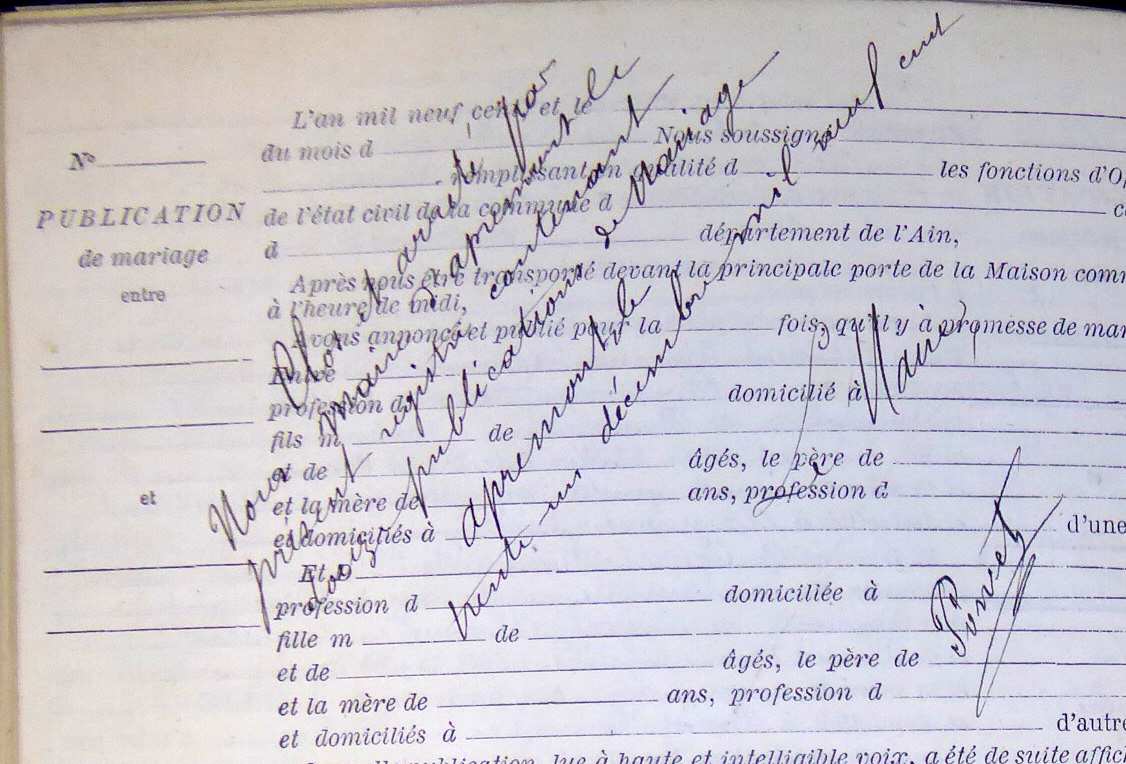 L'an mil neuf cent et le
Nº
du mois d Nous soussigné
remplissant en qualité d les fonctions d'O
PUBLICATION
de l'état civil de la commune d
de mariage
d département de l'Ain,
entre
Après nous être transporté devant la principale porte de la Maison com
à l'heure de midi,
Avons annoncé et publié pour la fois, qu'il y à promesse de mar
Entre
profession d domicilié à
fils m de
et de âgés, le père de
et
et la mère de ans, profession d
et domiciliés à d'une
Et D
profession d domiciliée à
fille m de
et de âgés, le père de
et la mère de ans, profession d
et domiciliés à d'autre
publication, lue à haute et intelligible voix, a été de suite affich
Clos et arrêté par
Nous maire d'apremont le
présent registre contenant
publications de Mariage
apremont le
trente-un décembre mil neuf cent
Maire,
Ponvet